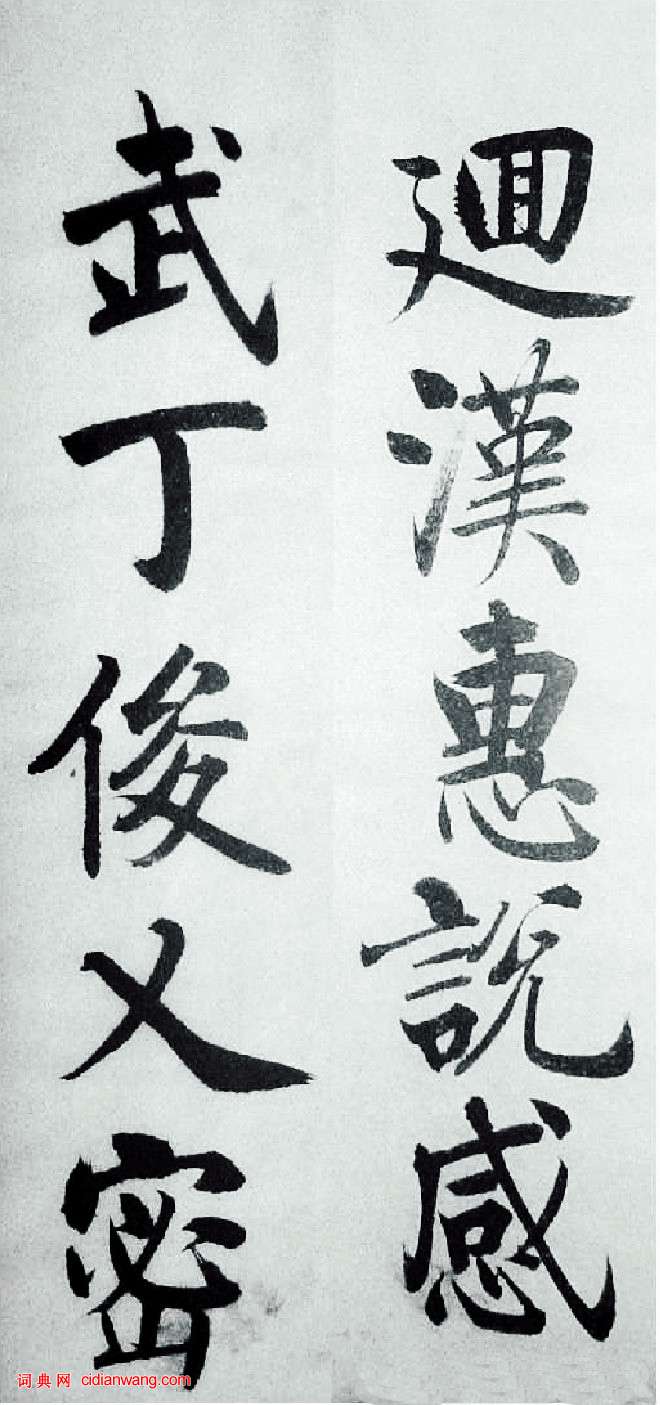 廻漢惠説感
武丁俊乂密
词典网 cidianwang.com